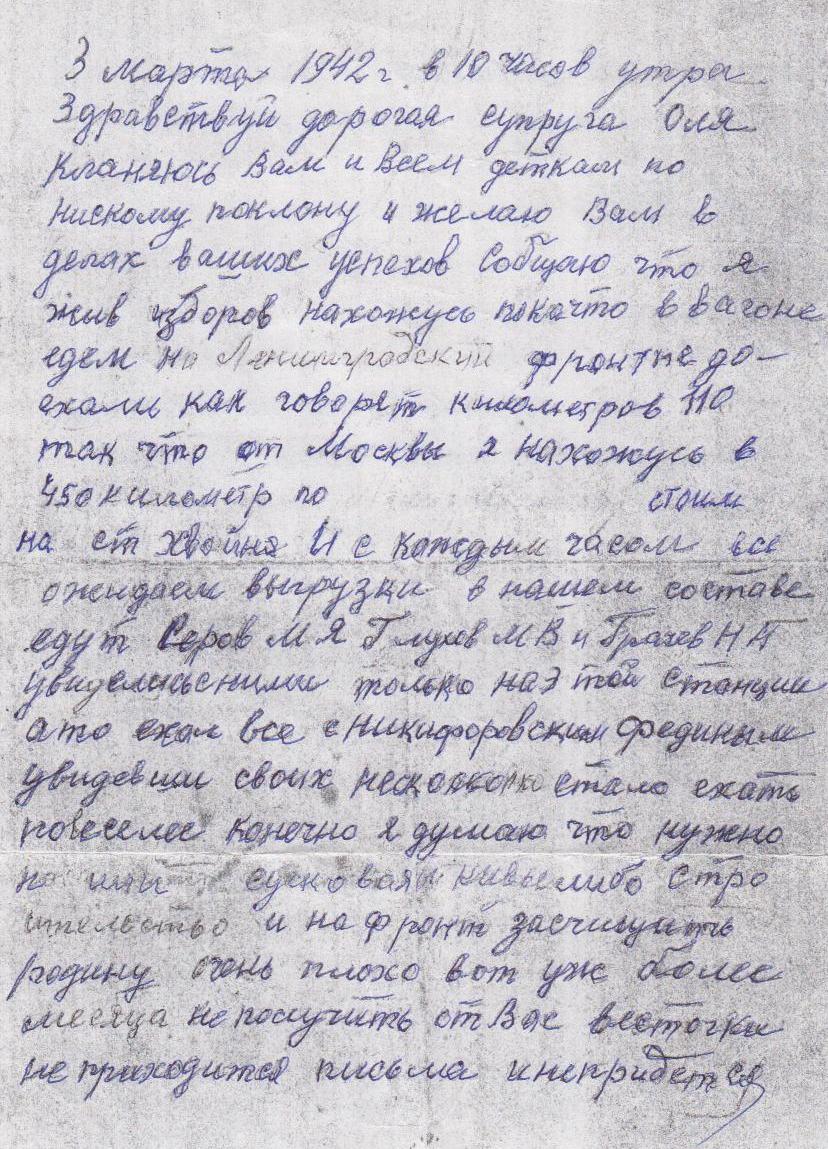 3 марта 1942 г в 10 часов утра
Здравствуй дорогая супруга Оля
кланяюсь Вам и Всем деткам по
нискому поклону и желаю Вам в
делах ваших успехов Собщаю что я
жив издоров нахожусь покачто в вагоне
едем на Ленинградский фронт не до-
ехали как говорят километров 110
так что от Москвы я нахожусь в
450 километр по стоим
на ст Хвойна И с каждым часом все
ожидаем выгрузки в нашем составе
едут Серов М Я Глухов М В и Грачев Н П
увиделись сними только наэтой станции
ато ехал все с Никифоровским Фединым
увидевши своих несколько стало ехать
повеселее конечно я думаю что нужно
либо стро
ительство и на фронт засчищить
родину очень плохо вот уж более
месяца не получить от Вас весточки
не приходится письма и непридется